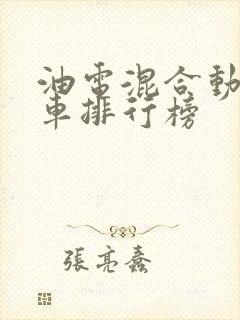 油電混合動
車排行榜
張亮蠢